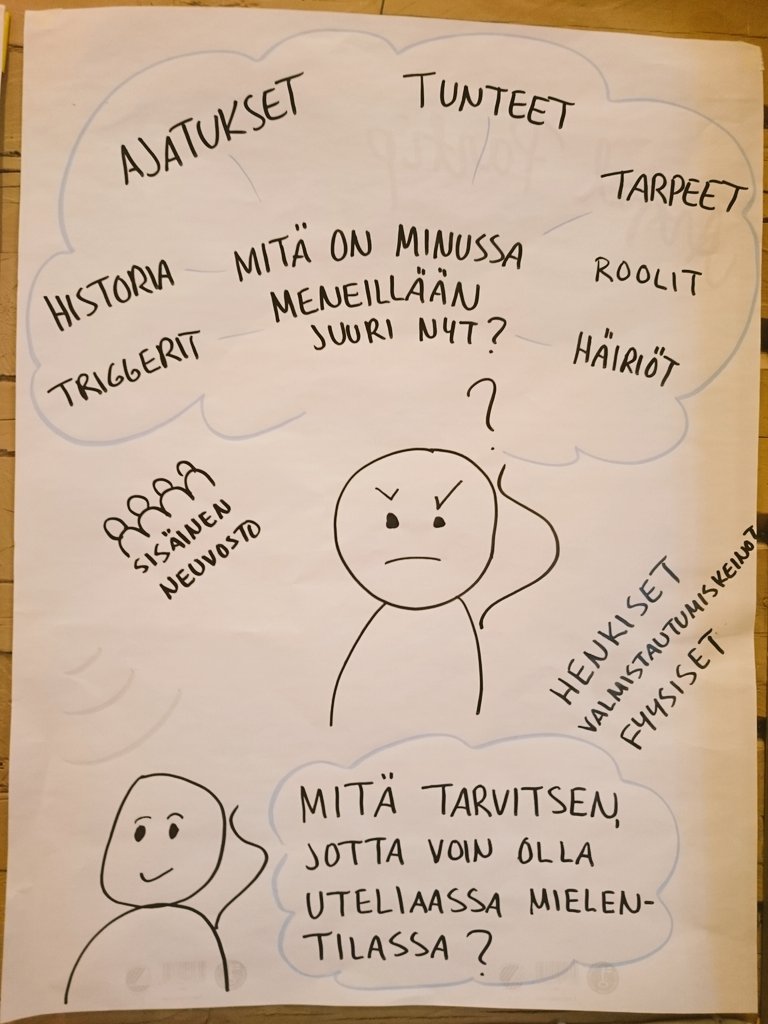 AJATUKSET
TUNTEET
TARPEET
HISTORIA
MITÄ ON MINUSSA
MENEILLÄÄN
JUURI NYT?
ROOLIT
TRIGGERIT
HÄIRIÖT
?
SISÄINEN
NEUVOSTO
HENKISET
VALMISTAUTUMISKEINOT
FYYSISET
MITÄ TARVITSEN,
JOTTA VOIN OLLA
UTELIAASSA MIELEN-
TILASSA?